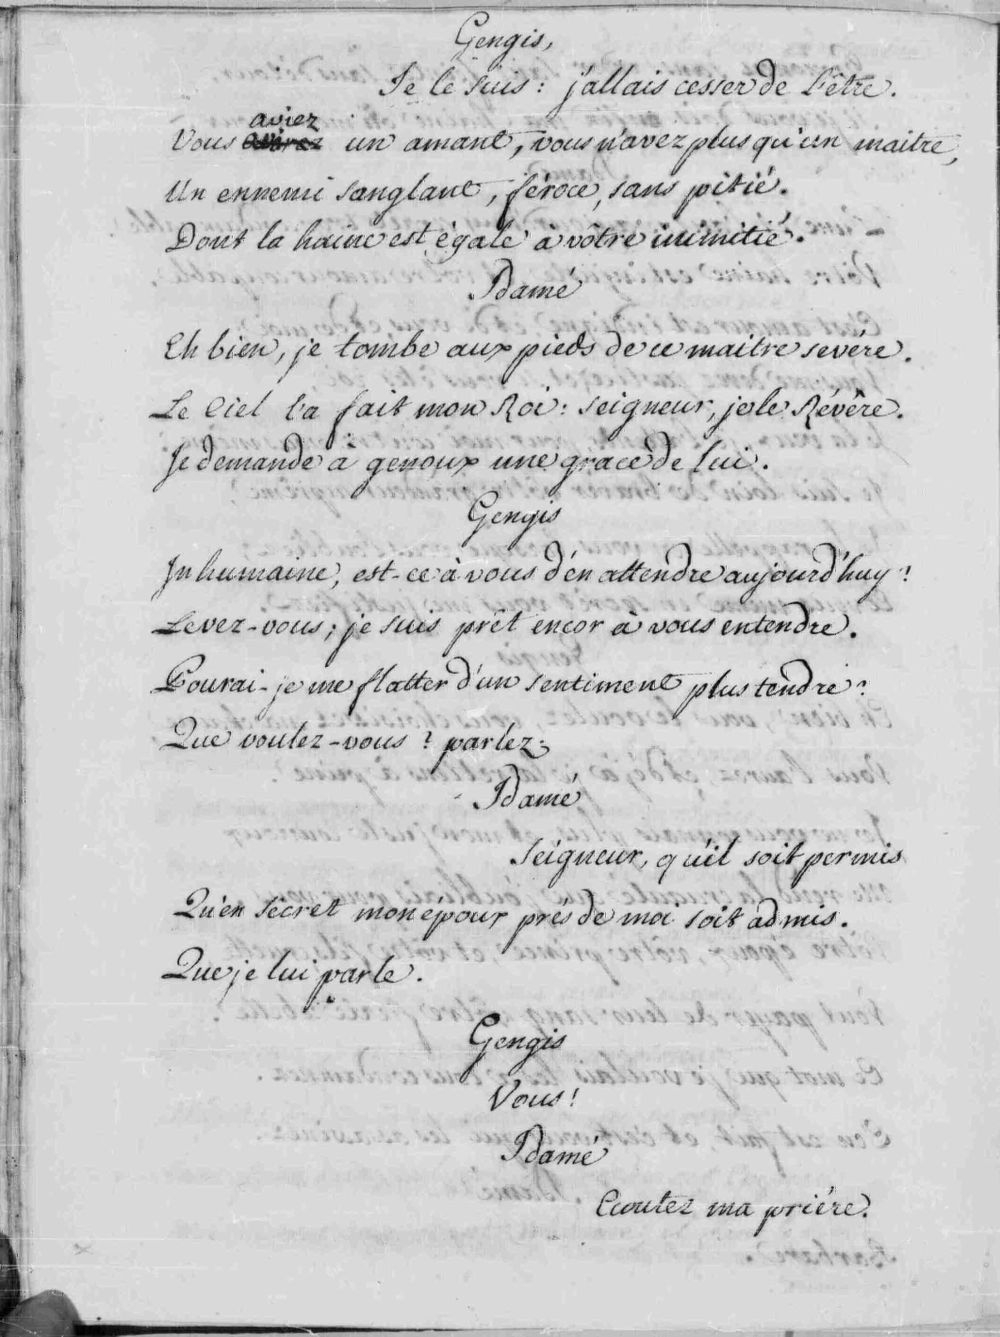 Gengis,
Je le suis : j'allais cesser de l'être.
aviez
Vous un amant, vous n'avez plus qu'un maitre,
Un ennemi sanglant, féroce, sans pitié.
Dont la haine est égale a vôtre inimitié.
Idamé
Eh bien, je tombe aux pieds de ce maitre sevére.
Le Ciel l'a fait mon Roi : Seigneur, je le Révêre.
Je demande a genoux une grace de lui.
Gengis
Inhumaine, est-ce à vous d'en attendre aujourd'huy ?
Levez-vous ; je suis prêt encor à vous entendre.
Pourai-je me flatter d'un sentiment plus tendre ?
Que voulez-vous ? parlez ;
Idamé
Seigneur, qu'il soit permis
Qu'en sécret mon époux prés de moi soit admis.
Que je lui parle.
Gengis
Vous !
Idamé
Ecoutez ma priére.